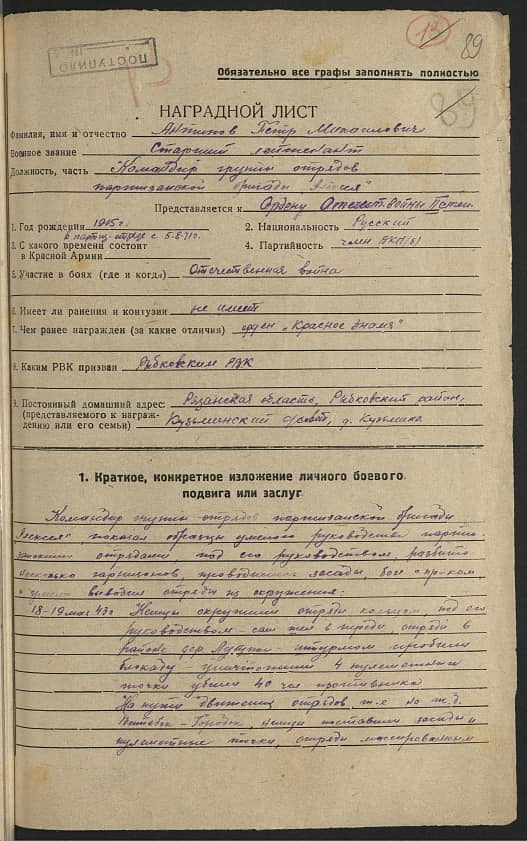 13
89
ПОСТУПИЛО
Обязательно все графы заполнять полностью
89
НАГРАДНОЙ ЛИСТ
Фамилия, имя и отчество Антипов Петр Михайлович
Военное звание Старший лейтенант
Должность, часть Командир группы отрядов
партизанской бригады
Представляется к Ордену Отечест. Войны II степ.
1. Год рождения 1905 г. 2. Национальность Русский
3. С какого времени состоит в партиз. отряде с 5.8.41 г. 4. Партийность член ВКП(б)
в Красной Армии
5. Участие в боях (где и когда) Отечественная война
6. Имеет ли ранения и контузии не имеет
7. Чем ранее награжден (за какие отличия) орден „Красное Знамя"
8. Каким РВК призван РВК
9. Постоянный домашний адрес: Рязанская область, район,
(представляемого к награж-
дению или его семьи) Кузьминский с/совет, д.
1. Краткое, конкретное изложение личного боевого
подвига или заслуг
Командир группы отрядов партизанской бригады
показал образцы умелого руководства парти-
занскими отрядами под его руководством, разбито
несколько гарнизонов, проводились засады, бои с пр-ком,
умело выводил отряды из окружения:
18-19 мая 43 г Немцы окружили отряды кольцом, под его
руководством отряды в
районе дер. штурмом пробили
блокаду уничтожили 4 пулеметные
точки убили 40 чел противника
На пути движения отрядов на ж.д.
Городок немцы поставили засады и
пулеметные точки, отряды массированным